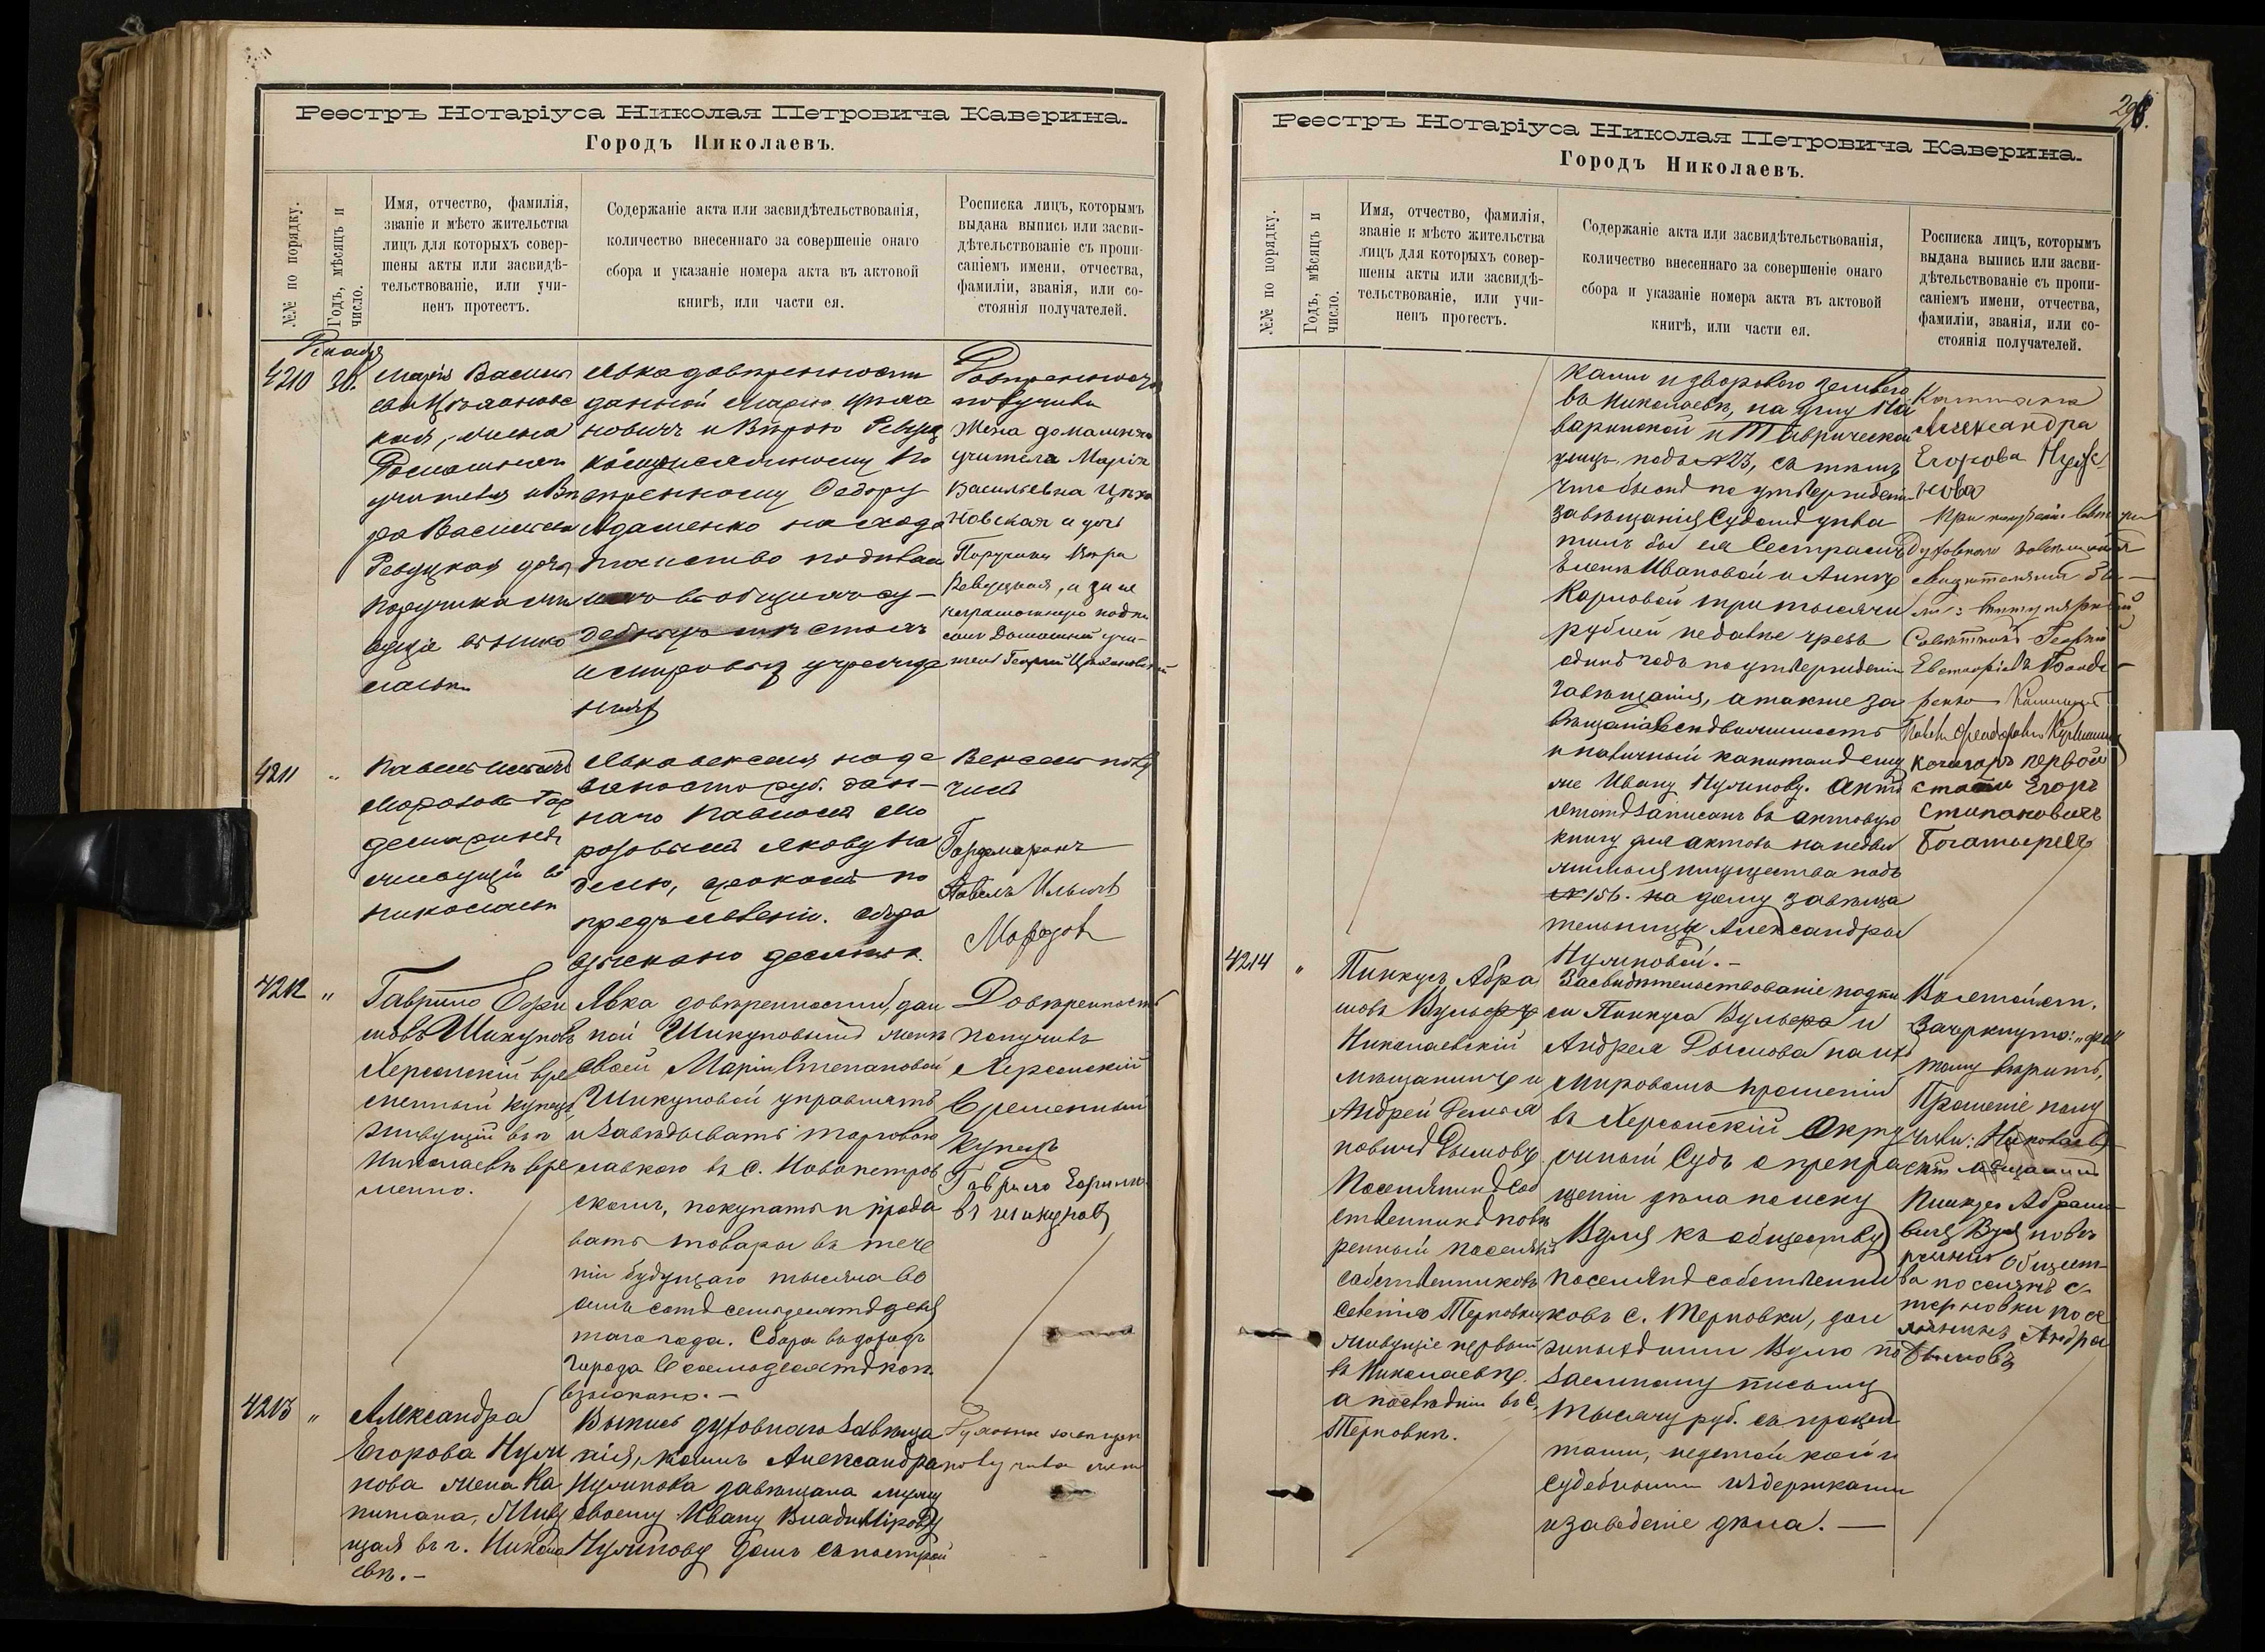 Реестръ Нотаріуса Николая Петровича Каверина.
Городъ Николаевъ.
№№ по порядку.
Годъ, мѣсяцъ и
число.
Имя, отчество, фамилія,
званіе и мѣсто жительства
лицъ для которыхъ совер-
шены акты или засвидѣ-
тельствованіе, или учи-
ненъ протестъ.
Содержаніе акта или засвидѣтельствованія,
количество внесеннаго за совершеніе онаго
сбора и указаніе номера акта въ актовой
книгѣ, или части ея.
Росписка лицъ, которымъ
выдана выпись или засви-
дѣтельствованіе съ пропи-
саніемъ имени, отчества,
фамиліи, званія, или со-
стоянія получателей.
Декабря
4210
30.
Марія Василь
жена
Домашняго
учителя и Вѣ
ра Васильева
Ревуцкая дочь
Поручика жи
вущія въ Нико
лаевѣ
Явка довѣренности
данной Маріею Цѣха
новичъ и Вѣрою Ревуц
кою
вѣренному Федору
Адаменко на хода
тайство по дѣлам
ихъ въ общихъ су-
дебныхъ мѣстахъ
и мировыхъ учрежде
ніяхъ
Довѣренность
получили
Жена домашняго
учителя Марія
Васильевна Цѣха
новская и дочь
Поручика Вѣра
Ревуцкая, а за не
неграмотную подпи
салъ Домашній учи-
тель Георгій Цѣхановскій
4211
"
Павелъ Ильичъ
Морозовъ Гар
демаринъ
живущій въ
Николаевѣ
Явка векселя на две
сти руб. дан-
наго Павломъ Мо
розовымъ Якову На
делю, срокомъ по
предъявленіи. Сбора
взыскано десять к.
Вексель полу
чилъ
Гардемаринъ
Павелъ Ильичъ
Морозовъ
4212
"
Гаврило Ефи
мовъ Шикуновъ
Херсонскій вре
менный купецъ
живущій въ г.
Николаевѣ вре
менно.
Явка довѣренности, дан
ной Шикуновымъ женѣ
своей Маріи Степановой
Шикуновой управлять
и завѣдывать торговою
лавкою въ с. Новопетров
скомъ, покупать и прода
вать товары въ тече
ніи будущаго тысяча во
семь сотъ семьдесятъ девя
таго года. Сбора въ доходъ
города Семьдесятъ коп.
взыскано. —
Довѣренность
получилъ
Херсонскій
Временный
Купецъ
Гаврило Ефимо
въ шикуновъ
4213
"
Александра
Егорова Нули
нова жена Ка
питана, Живу
щая въ г. Никола
евѣ. —
Выпись духовнаго завѣща
нія, коимъ Александра
Нулинова завѣщала мужу
своему Ивану Владимірову
Нулинову домъ съ построй
Духовное завѣщан
получила жена
298.
Реестръ Нотаріуса Николая Петровича Каверина.
Городъ Николаевъ.
№№ по порядку.
Годъ, мѣсяцъ и
число.
Имя, отчество, фамилія,
званіе и мѣсто жительства
лицъ для которыхъ совер-
шены акты или засвидѣ-
тельствованіе, или учи-
ненъ протестъ.
Содержаніе акта или засвидѣтельствованія,
количество внесеннаго за совершеніе онаго
сбора и указаніе номера акта въ актовой
книгѣ, или части ея.
Росписка лицъ, которымъ
выдана выпись или засви-
дѣтельствованіе съ пропи-
саніемъ имени, отчества,
фамиліи, званія, или со-
стоянія получателей.
ками и дворовою землею
въ Николаевѣ, на углу На
варинской и Таврической
улицъ подъ №23, съ тѣмъ
чтобы онъ по утвержденіи
завѣщанія Судомъ упла
тилъ бы ея Сестрамъ
Еленѣ Ивановой и Аннѣ
Карповой три тысячи
рублей не далѣе чрезъ
одинъ годъ по утвержденіи
завѣщанія, а также за
вѣщала всю движимость
и наличный капиталъ ему
же Ивану Нулинову. Актъ
этотъ записанъ въ актовую
книгу для актовъ на недви
жимыя имущества подъ
№ 156. на дому завѣща
тельницы Александры
Нулиновой. —
Капитана
Александра
Егорова Нули
нова
При
Духовнаго завѣщанія
Свидѣтелями бы-
ли: титулярный
Совѣтникъ Георгій
Евстафіевъ Бонда-
ренко
кочегаръ первой
статьи Егоръ
Степановичъ
Богатыревъ
4214
"
Пинкусъ Абра
мовъ Вульфъ
Николаевскій
мѣщанинъ и
Андрей Демья
новичъ Дымовъ
Поселянинъ соб
ственникъ повѣ
ренный поселянъ
собственниковъ
селенія Терновки
живущіе первый
въ Николаевѣ
а послѣдній въ с.
Терновкѣ.
Засвидѣтельствованіе подпи
си Пинкуса Вульфа и
Андрея Дымова на их
мировомъ прошеніи
въ Херсонскій Окру
жный Судъ о прекра
щеніи дѣла по иску
Вуля къ обществу
поселянъ собственни
ковъ с. Терновки, дол
Вулю по
заемному письму
тысячу руб. съ процен
тами, неустойкой и
судебными издержками
и заведеніе дѣла. —
Зачеркнуто: "
тому вѣрить,
Прошеніе полу
чили: Николаев
скій мѣщанинъ
Пинкусъ Абрамо
вичъ Вуль повѣ
ренный общест
ва поселянъ с.
терновки посе
лянинъ Андрей
Дымовъ